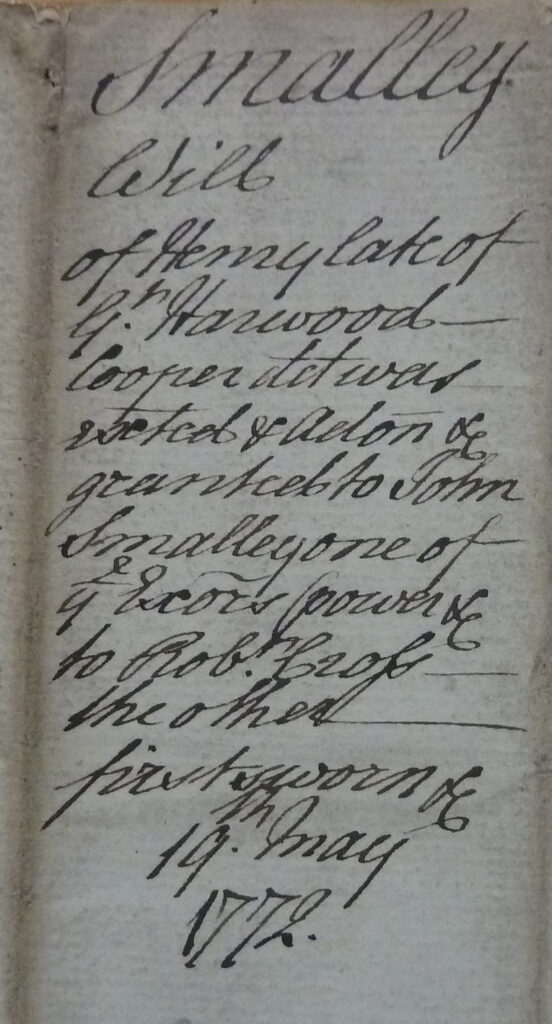 Smalley.
Will
of Henry late of
Gt. Harwood
Cooper dćt was
exćted & Adōn &c
granted to John
Smalley one of
ye Excōrs (power &c
to Robt. Cross
the other
first sworn &c
19th. May
1772.